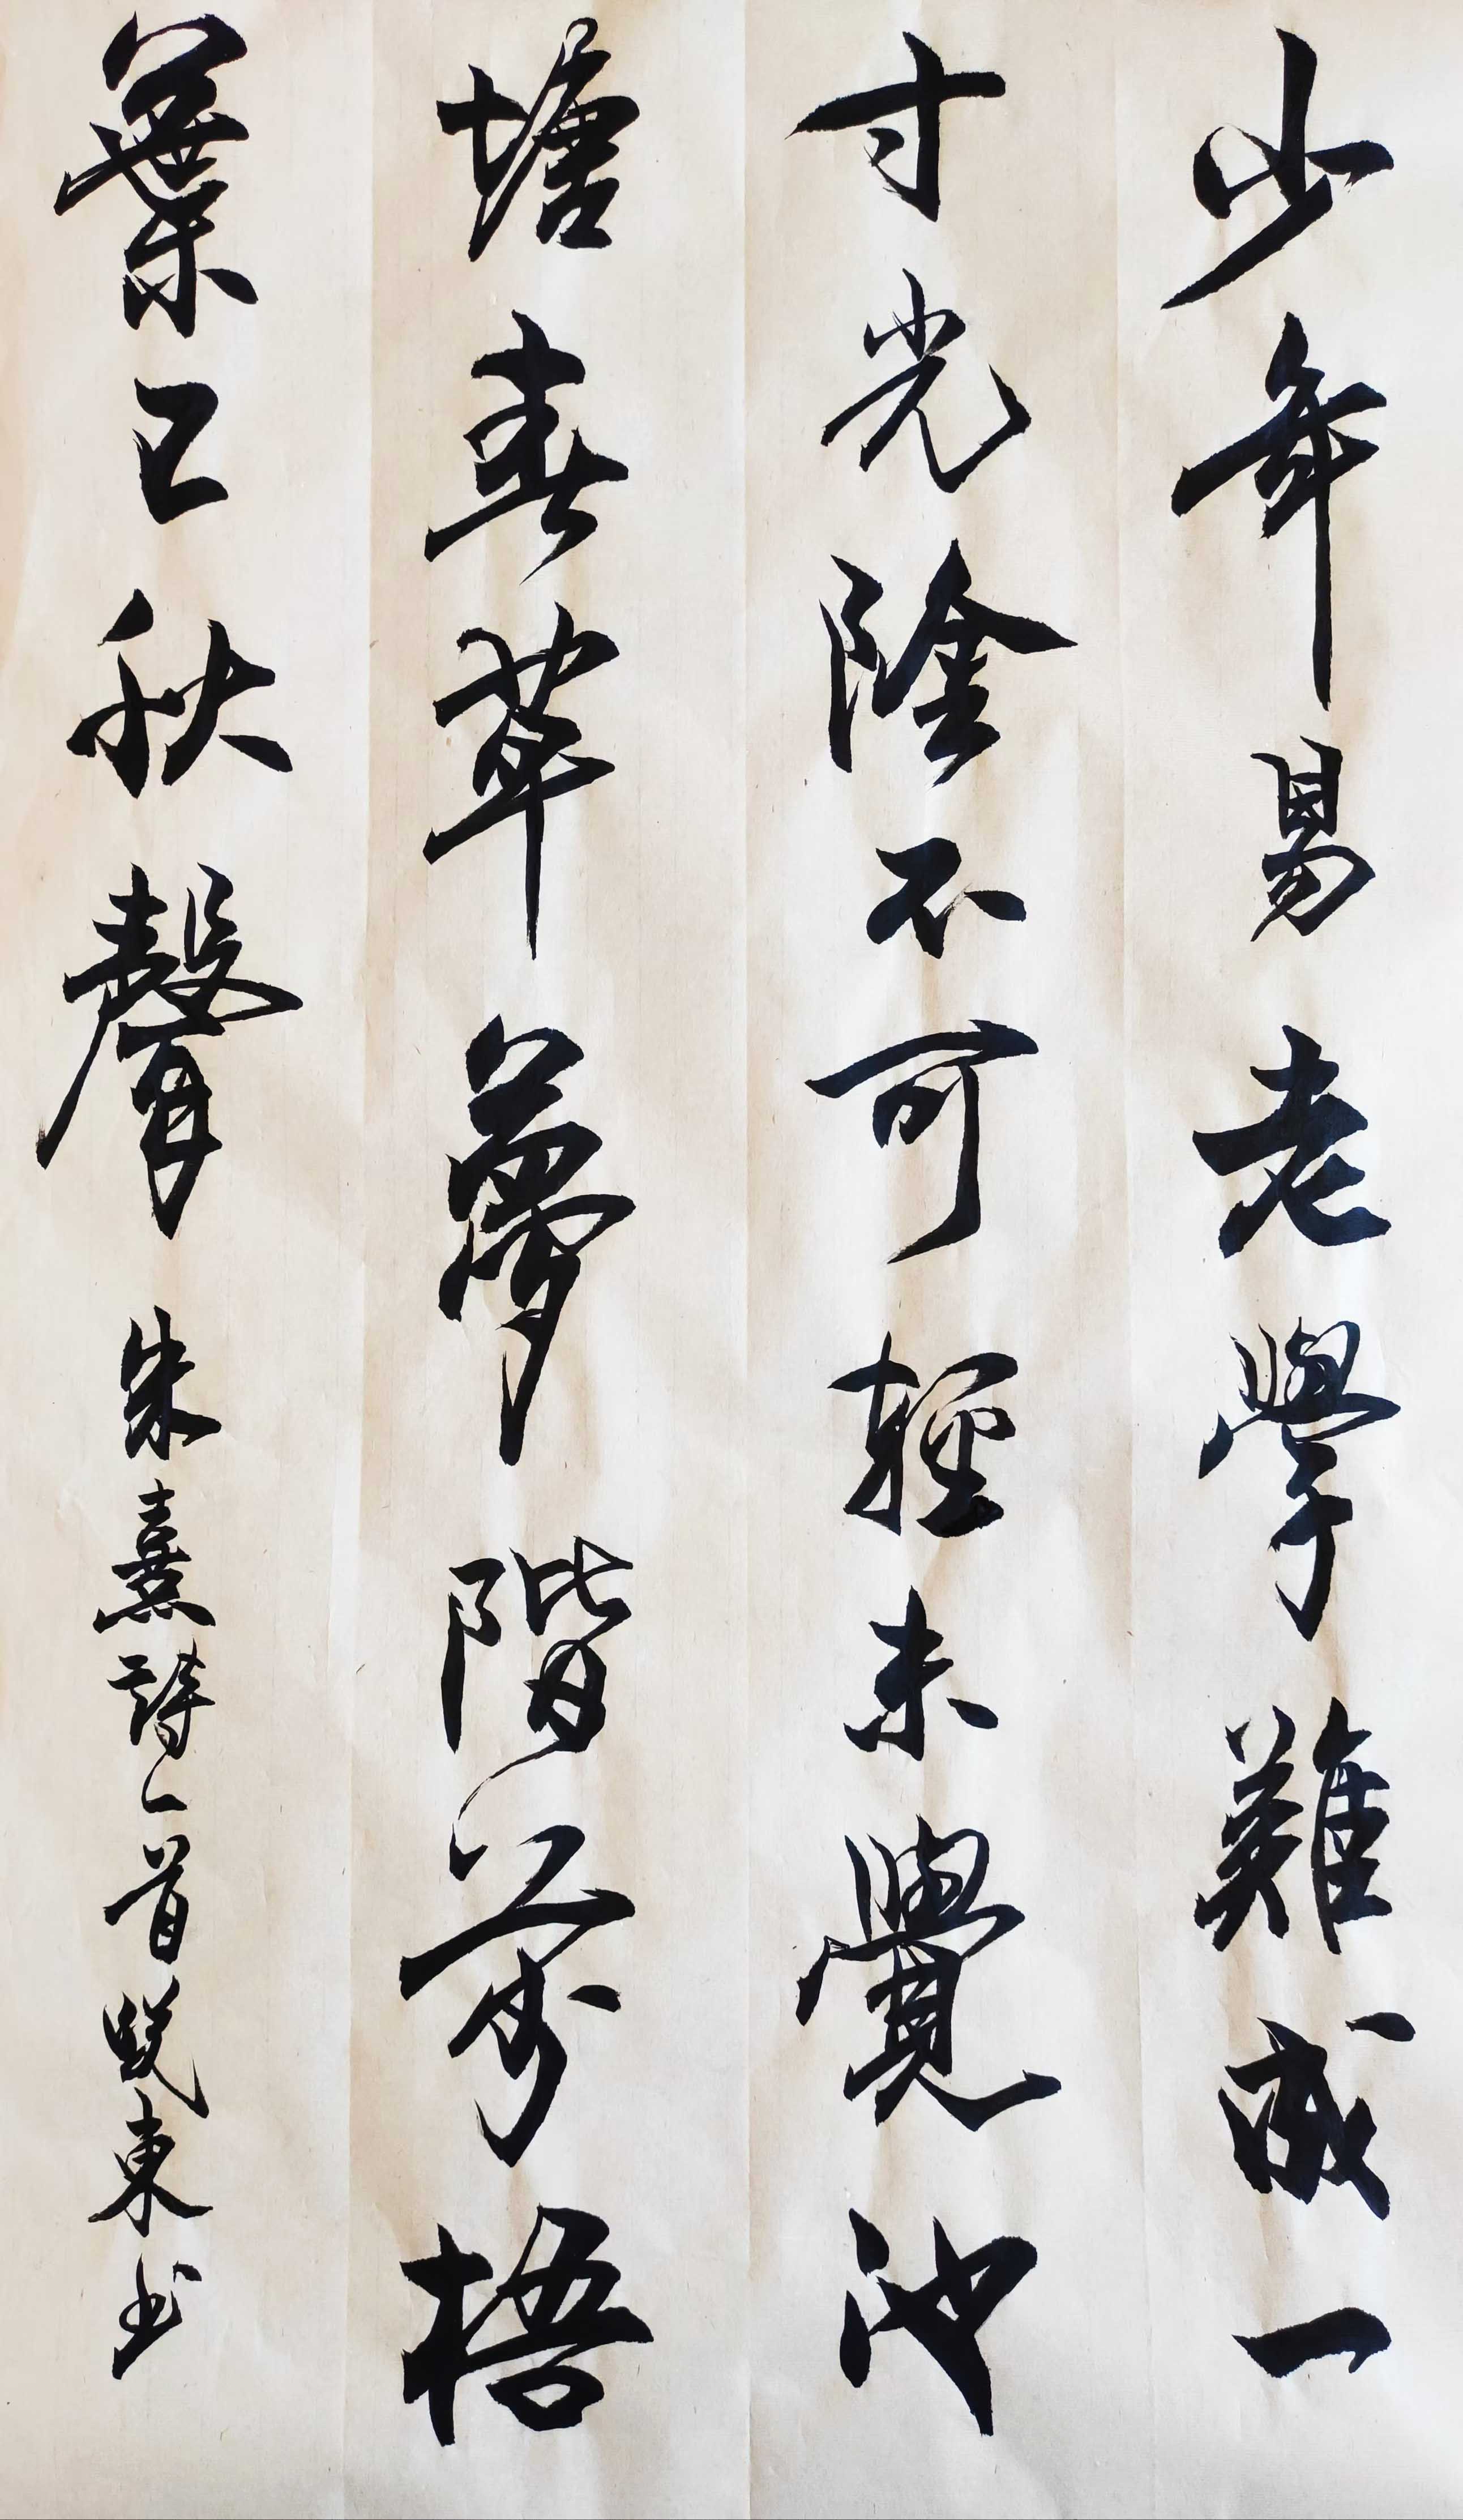 少年易老學難成一
寸光陰不可輕未覺池
塘春草夢階前梧
葉已秋聲 朱熹詩一首 東书